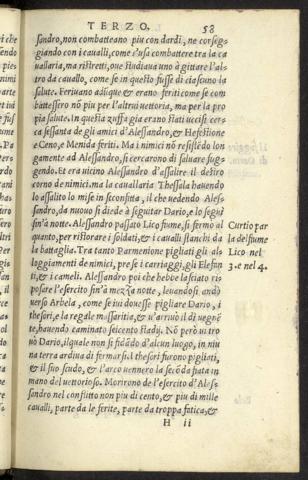 TERZO. 58
sandro, non combatteano piu con dardi, ne corseg-
giando con i caualli, come s'usa combattere tra la ca
uallaria, ma ristretti, oue studiaua uno à gittare l'al-
tro da cauallo, come se in questo fusse di ciascuno la
salute. Feriuano adūque & erano feriti come se com
battessero nō piu per l'altrui uettoria, ma per la pro
pia salute. In questa zuffa gia erano stati uccisi cer-
ca sessanta de gli amici d'Alessandro, & Hefestione
e Ceno, e Menida feriti. Ma i nimici nō resistēdo lon
gamente ad Alessandro, si cercarono di saluare fug-
gendo. Et era uicino Alessandro d'assalire il destro
corno de nimici. ma la cauallaria Thessala hauendo
lo assalito lo mise in scōnfitta, il che uedendo Ales-
sandro, da nuouo si diede à seguitar Dario, e lo seguí
fin'à notte. Alessandro passato Lico fiume, si fermo al
quanto, per ristorare i soldati, & i caualli stanchi da
la battaglia. Tra tanto Parmenione pigliati gli al-
loggiamenti de nimici, prese i carriaggi, gli Elefan
ti, & i cameli. Alessandro poi che hebbe lasciato ri-
posare l'esercito fin'à mezza notte, leuandosi andò
verso Arbela, come se iui douesse pigliare Dario, i
thesori, e la regale massaritia, & u'arriuò il dì uegnē
te, hauendo caminato seicento stadÿ. Nō però ui tro
vò Dario, ilquale non si fidādo d'alcun luogo, in niu
na terra ardiua di fermarsi. I thesori furono pigliati,
& il suo scudo, & l'arco uennero la secōda fiata in
mano del uettorioso. Morirono de l'esercito d'Ales-
sandro nel conflitto non piu di cento, & piu di mille
caualli, parte da le ferite, parte da troppa fatica, &
H ii
Curtio par
la del fiume
Lico nel
3. e nel 4.